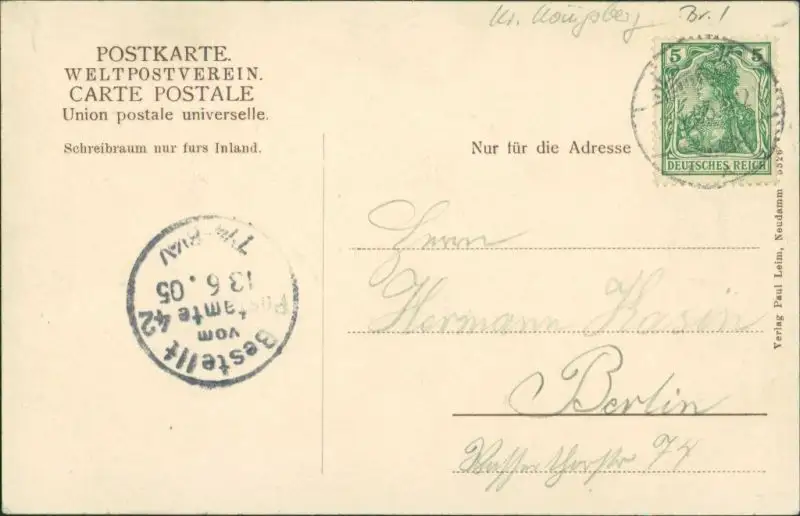 Kr. Königsberg Br. 1
POSTKARTE.
WELTPOSTVEREIN.
CARTE POSTALE
Union postale universelle.
Schreibraum nur furs Inland.
Nur für die Adresse
5 5
DEUTSCHES REICH
Herrn
Hermann Kasin
Berlin
74
Bestellt
vom
Postamte 42
13 6. 05
Verlag Paul Leim, Neudamm